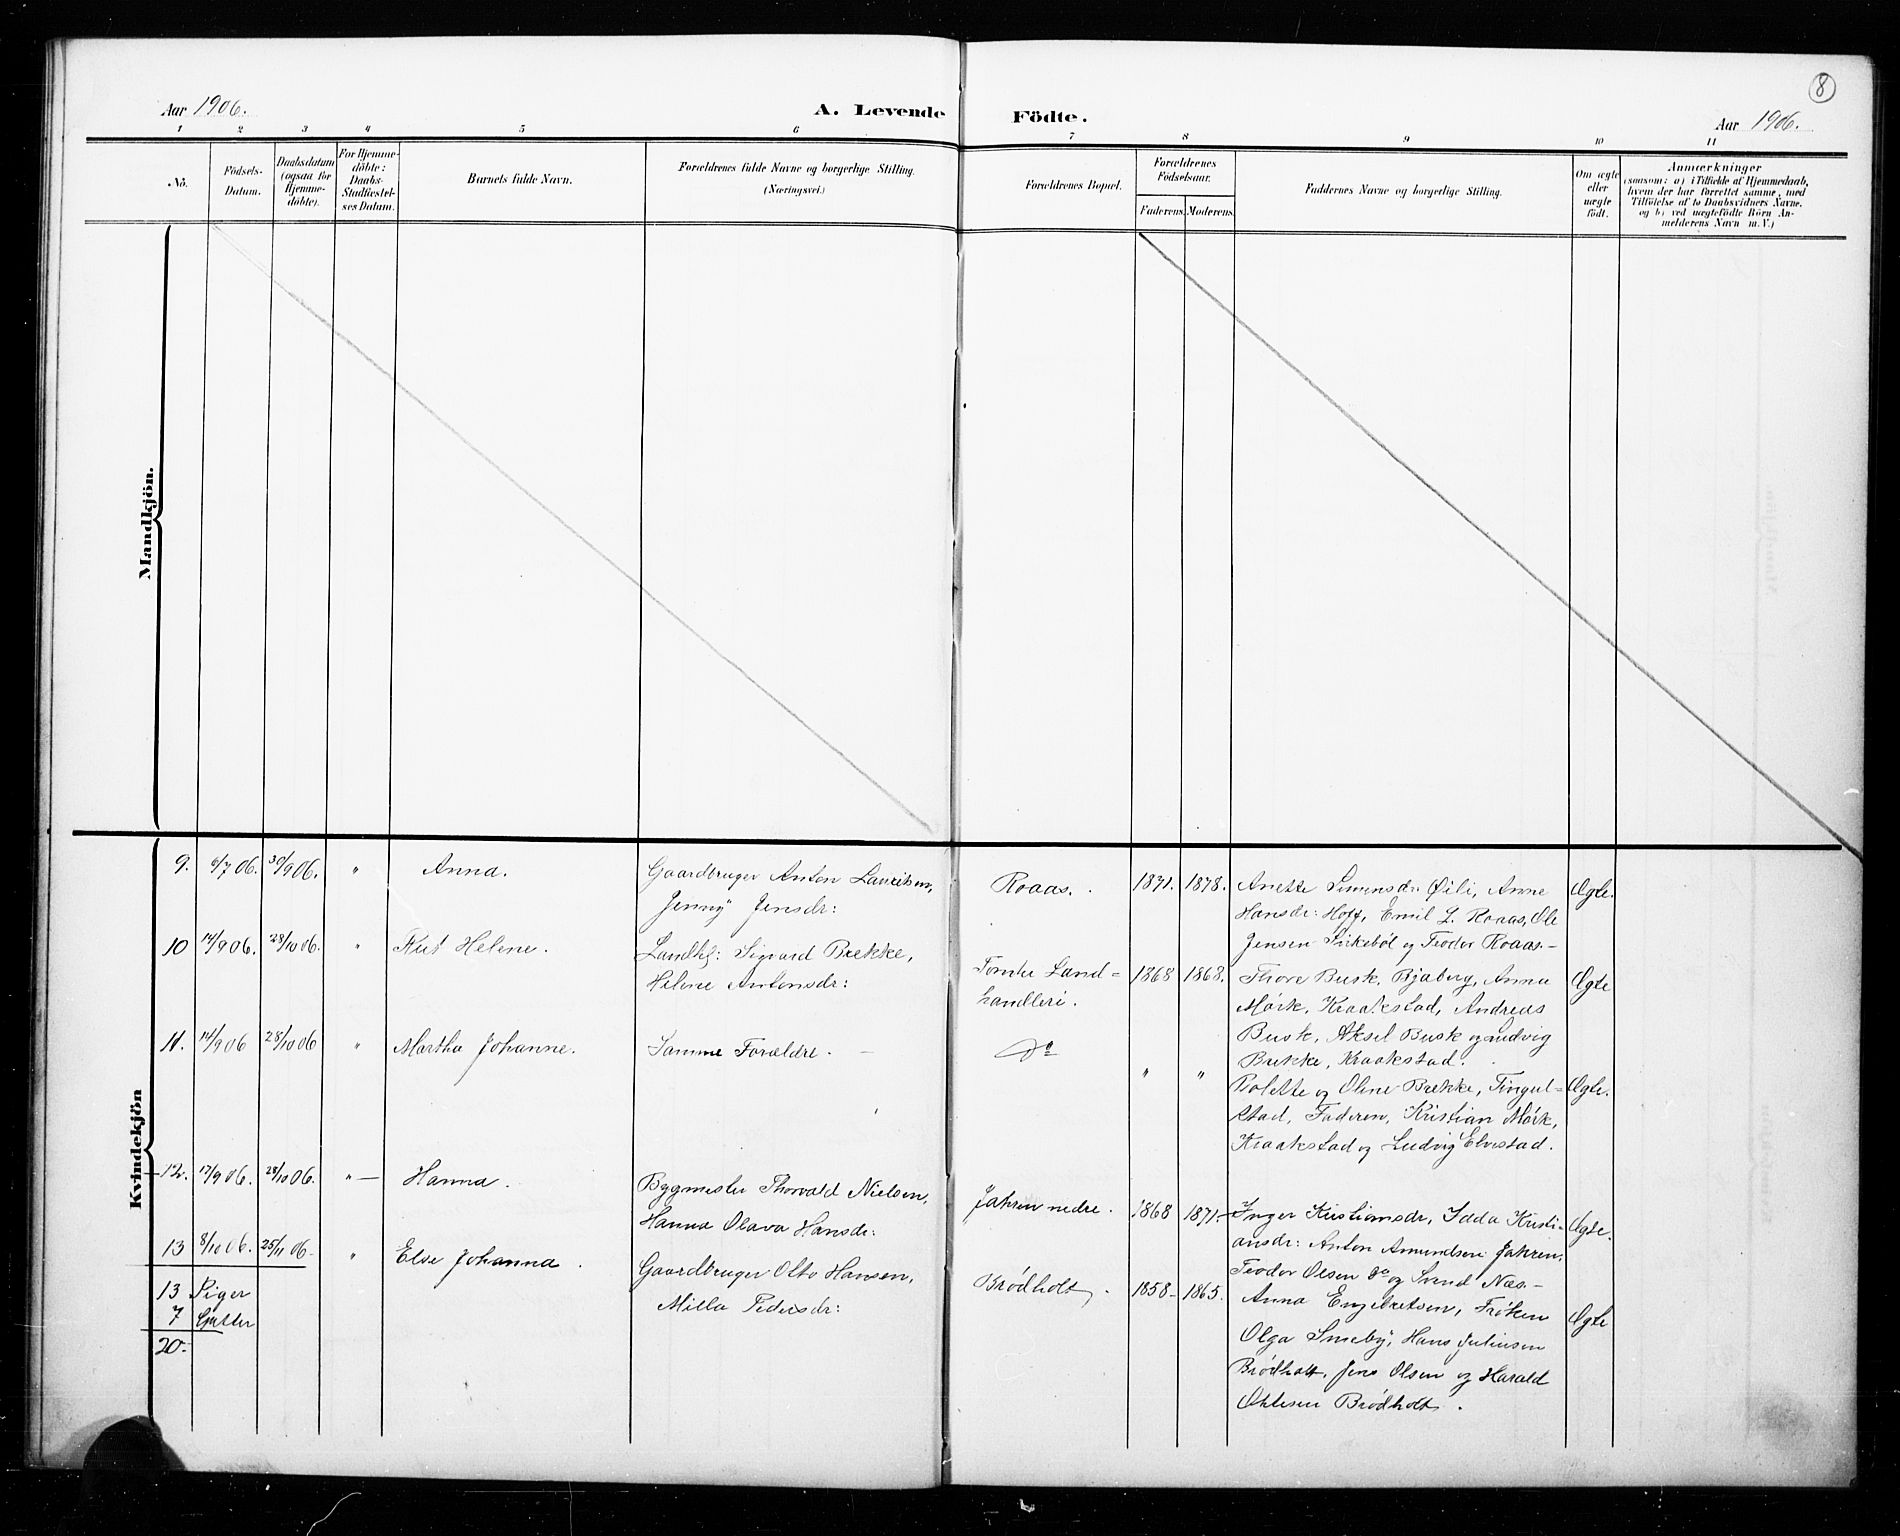 8
Aar 1906.
A. Levende Födte.
Aar 1906.
1 2 3 4 5 6 7 8 9 10 11
No.
Födsels-
Datum.
Daabsdatum
(ogsaa for
Hjemme-
döbte).
For Hjemme-
döbte:
Daabs-
Stadfæstel-
ses Datum.
Barnets fulde Navn.
Forældrenes fulde Navne og borgerlige Stilling.
(Næringsvei.)
Forældrenes Bopæl.
Forældrenes
Födselsaar.
Faderens. Moderens.
Faddernes Navne og borgerlige Stilling.
Om ægte
eller
uægte
födt.
Anmærkninger
(saasom: a) i Tilfælde af Hjemmedaab,
hvem der har forrettet samme, med
Tilföielse af to Daabsvidners Navne,
og b) ved uægtefödte Börn An-
melderens Navn m.V.)
Mandkjön.
Kvindekjön
9. 6/7 06. 30/9 06. " Anna.
Gaardbruger Anton Lauritsen,
Jenny Jensdr:
Roaas.
1871. 1878.
Anette Simensdr: Øili, Anne
Hansdr: Hoff, Emil L. Roaas, Ole
Jensen Sirkeböl og Teodor Roaas-
Ægte.
10 14/9 06. 28/10 06. " Helene.
Landhd: Sigvard Brekke,
Helene Antonsdr:
Tomter Land=
handleri.
1868 1868.
Thore Busk, Bjaberg, Anna
Mörk, Kraakstad, Andreas
Busk, Aksel Busk og Ludvig
Brekke, Kraakstad.
Ægte
11. 14/9 06 28/10 06 " Martha Johanne.
Samme Forældre. —
Do
" "
Bolette og Oline Brekke, Tingul=
stad, Faderen, Kristian Mörk,
Kraakstad og Ludvig Elvestad.
Ægte.
12. 17/9 06. 28/10 06. " — Hanna.
Bygmester Thorvald Nielsen,
Hanna Olava Hansdr:
Jahren nedre.
1868 1871.
Inger Kristiansdr, Idda Kristi-
ansdr: Anton Amundsen Jahren,
Teodor Olsen do og Svend Næs-
Ægte.
13 8/10 06. 25/11 06- " Else Johanna.
Gaardbruger Otto Hansen,
Milla Pedersdr:
Brödholt.
1858- 1865.
Anna Engebretsen, Fröken
Olga Smeby, Hans Juliusen
Brödholt, Jens Olsen og Harald
Brödholt.
Ægte
13 Piger
7 Gutter
20-